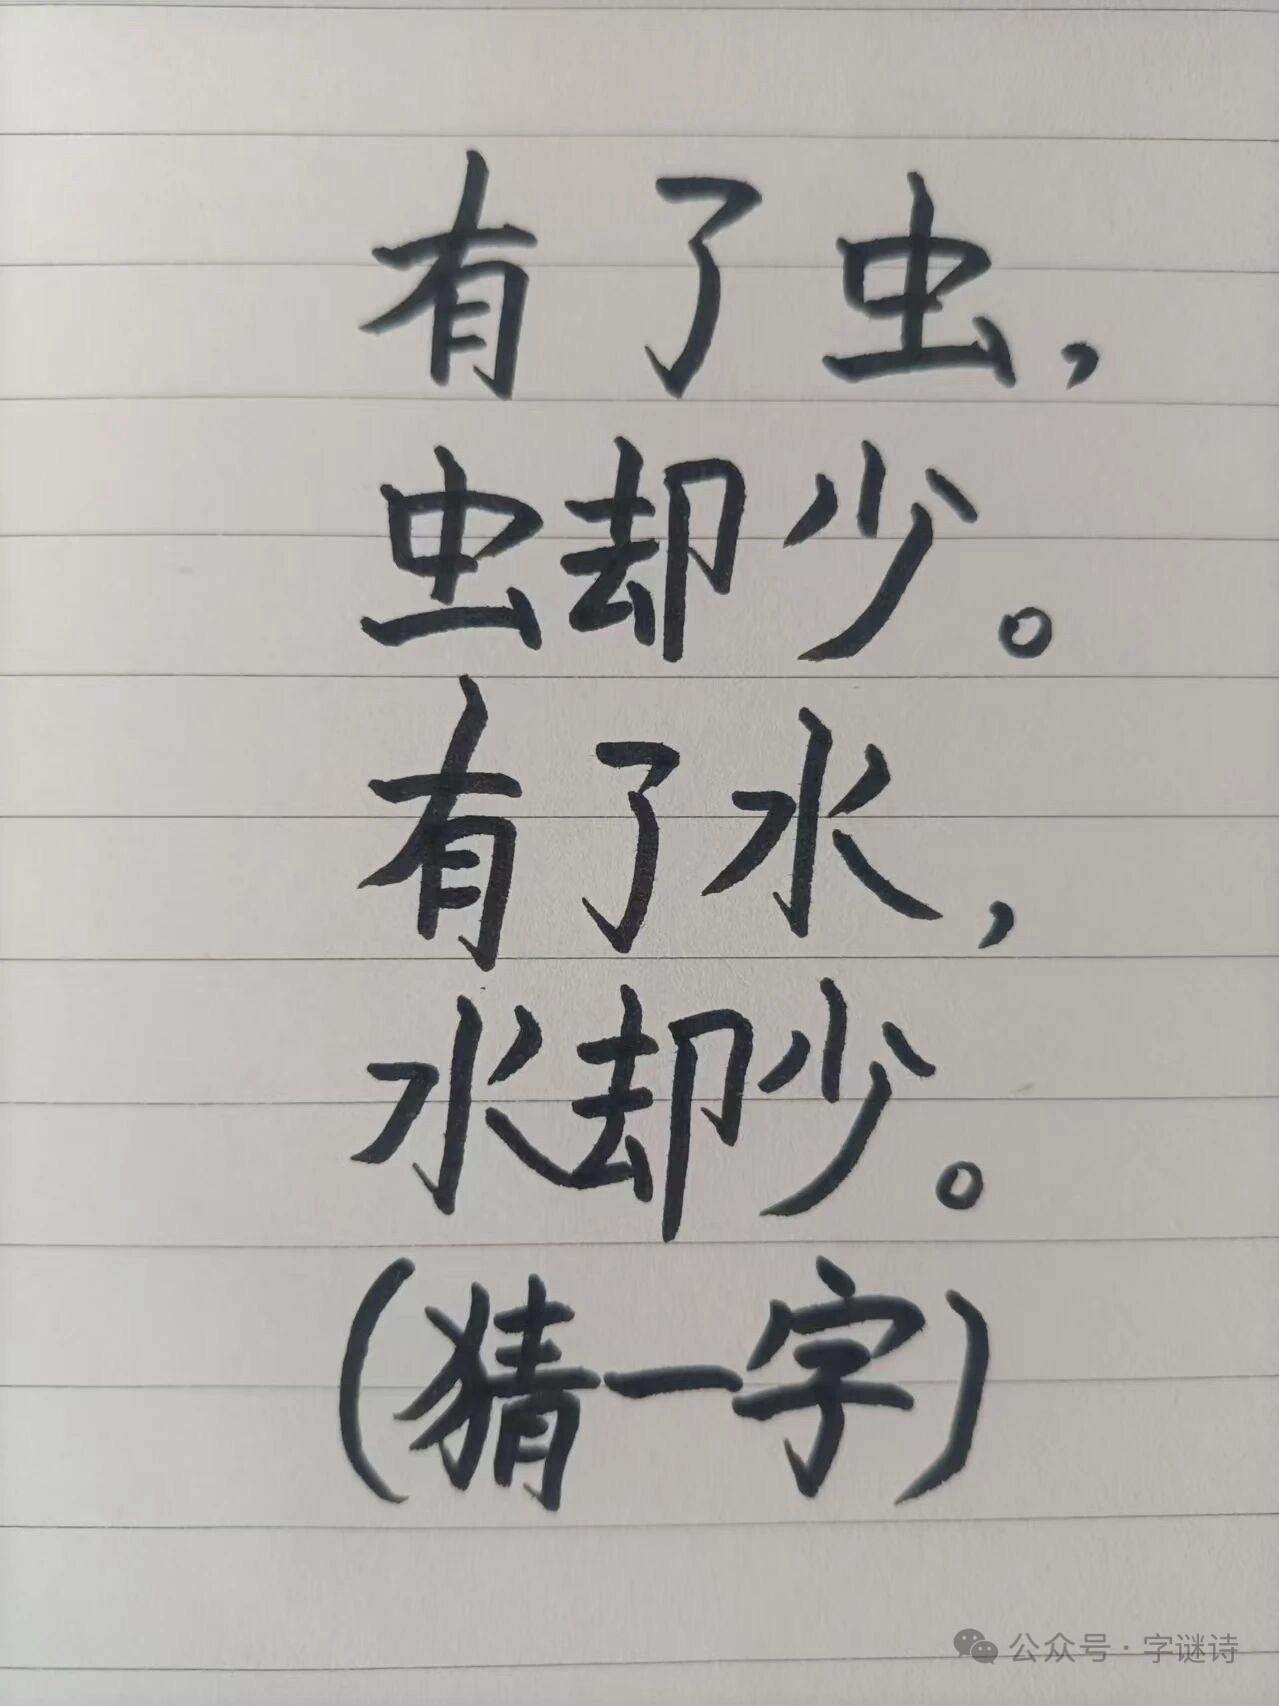 有了虫，
虫却少。
有了水，
水却少。
（猜一字）
公众号·字谜诗